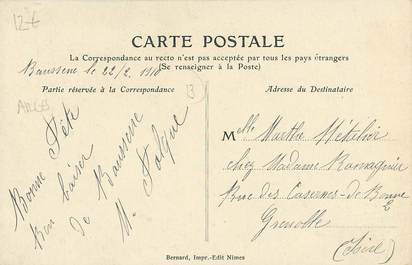 12 €
CARTE POSTALE
La Correspondance au recto n'est pas acceptée par tous les pays étrangers
(Se renseigner à la Poste)
le 22/2 1910
Partie réservée à la Correspondance
Adresse du Destinataire
Bonne Fête
Bon baiser
de
M.
Melle Marthe
chez Madame
Rue des Casernes de Bonne
Grenoble
(Isère)
Bernard, Impr.-Edit Nimes